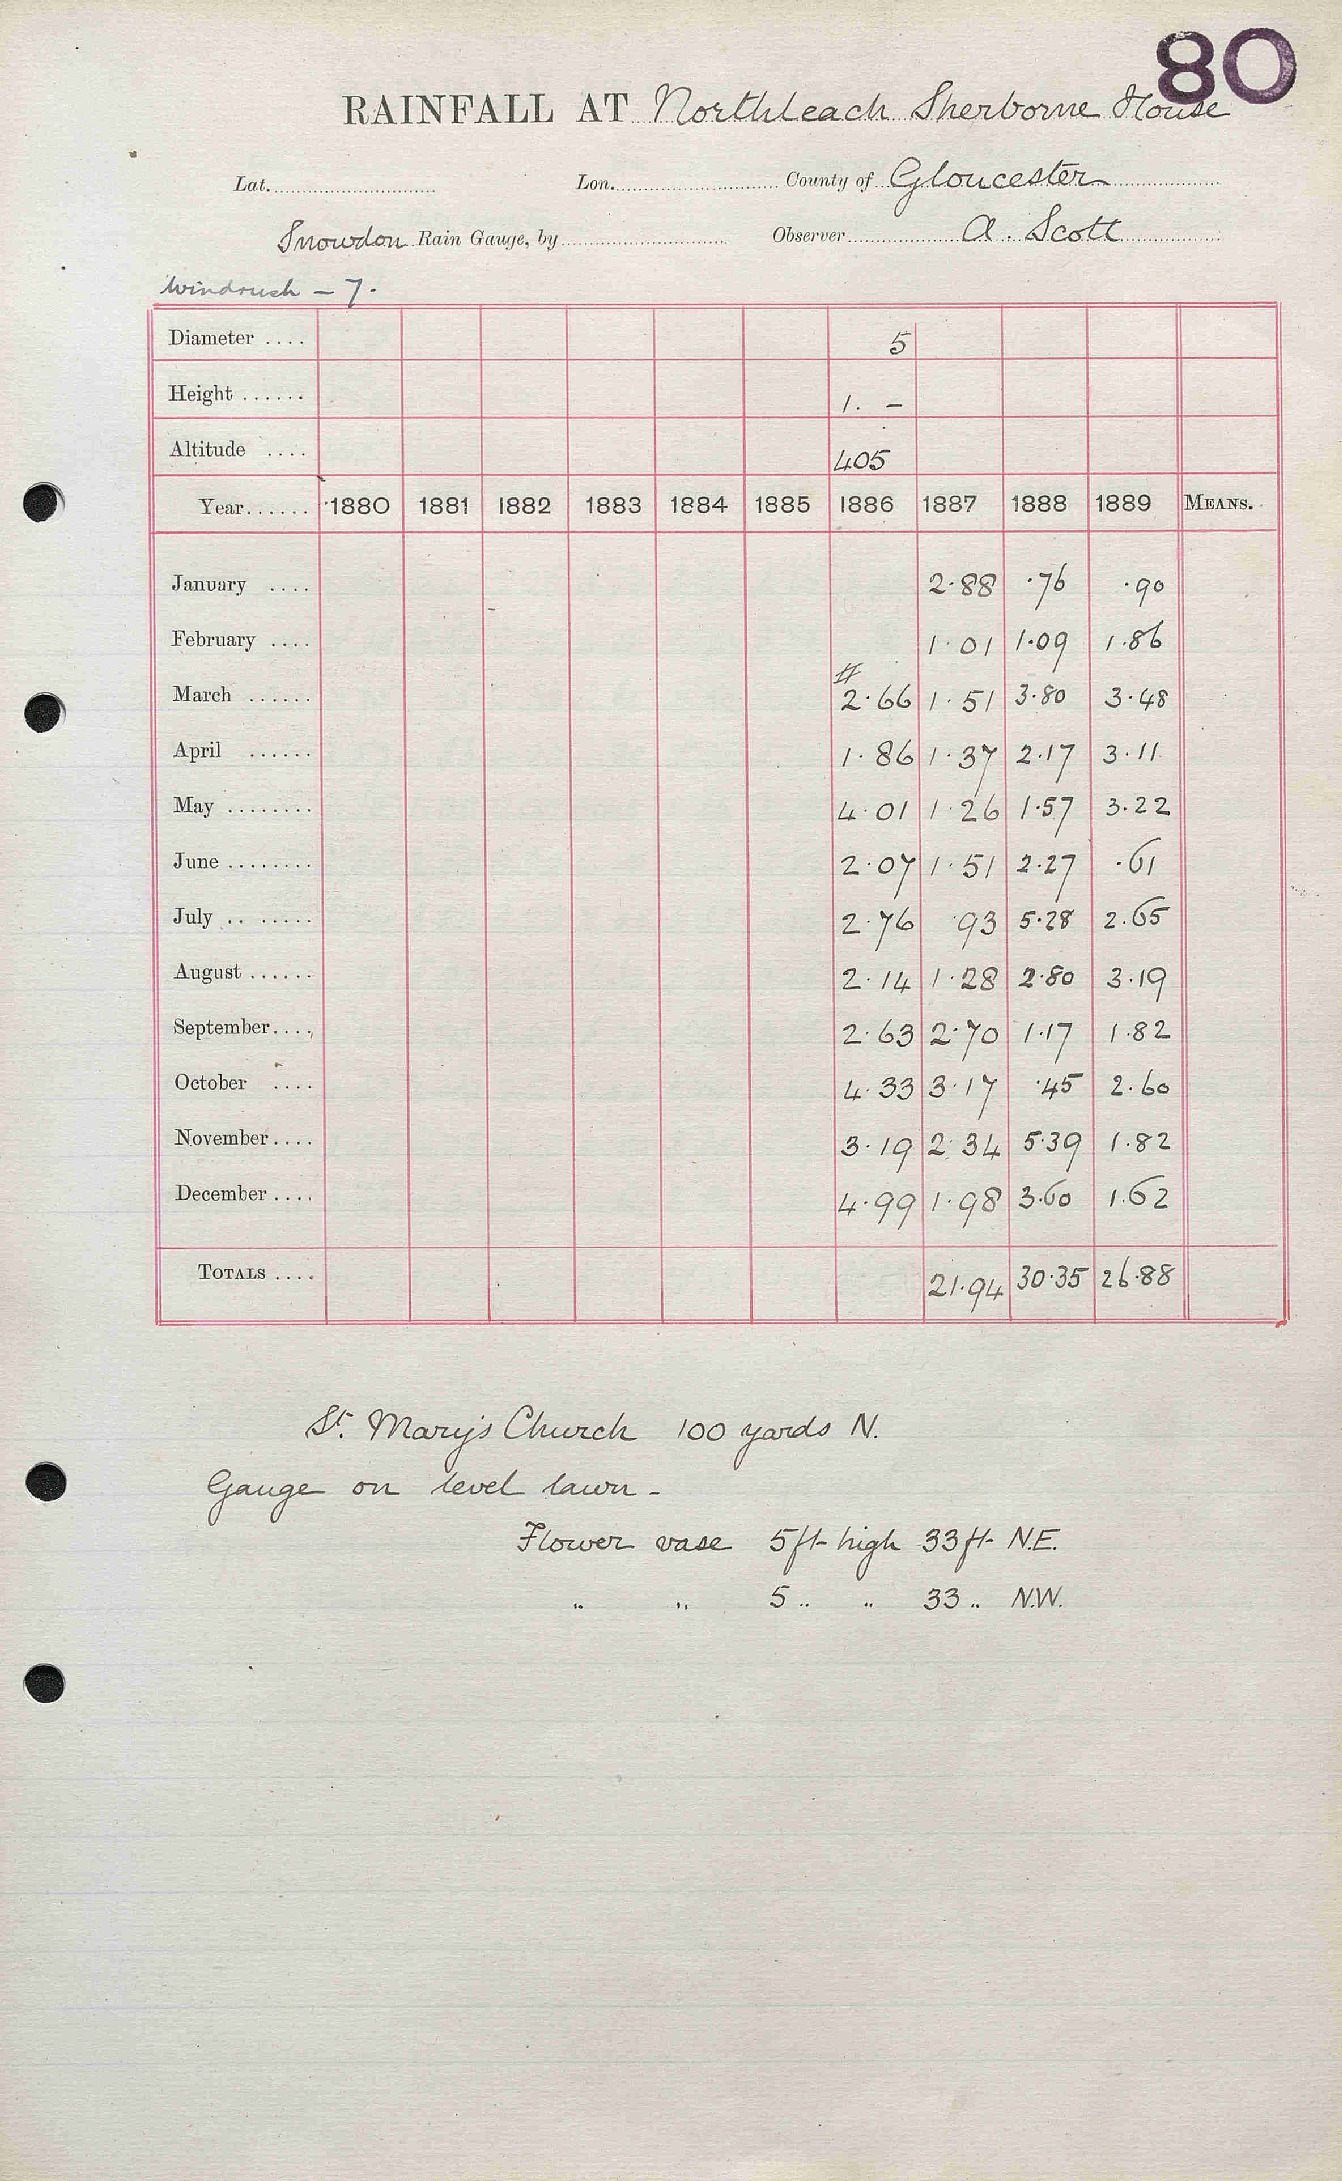 80
RAINFALL AT Northleach Sherborne House
Lat. Lon. County of Gloucester
Snowdon Rain Gauge, by Observer A. Scott
Windrush - 7.
Diameter .... 5
Height ...... 1. -
Altitude .... 405
Year...... 1880 1881 1882 1883 1884 1885 1886 1887 1888 1889 MEANS.
January .... 2.88 .76 .90
February .... 1.01 1.09 1.86
#
March ...... 2.66 1.51 3.80 3.48
April ...... 1.86 1.37 2.17 3.11
May ........ 4.01 1.26 1.57 3.22
June ........ 2.07 1.51 2.27 .61
July .. ..... 2.76 .93 5.28 2.65
August ...... 2.14 1.28 2.80 3.19
September.... 2.63 2.70 1.17 1.82
October .... 4.33 3.17 .45 2.60
November.... 3.19 2.34 5.39 1.82
December.... 4.99 1.98 3.60 1.62
TOTALS .... 21.94 30.35 26.88
St. Mary's Church 100 yards N.
Gauge on level lawn -
Flower vase 5ft high 33ft N.E.
" " 5 " " 33 " N.W.